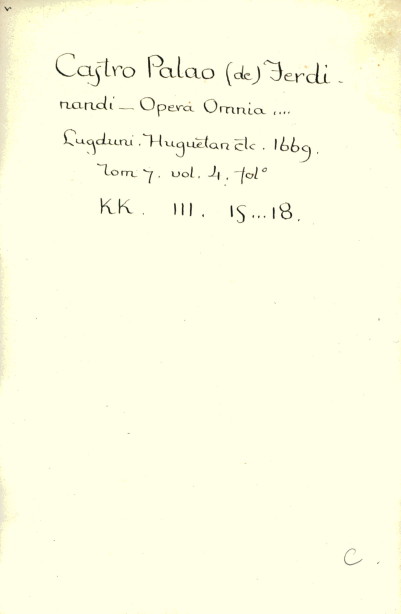 Castro Palao (de) Ferdi-
nandi — Opera Omnia ....
Lugduni. Huguetan etc. 1669.
Tom 7. vol. 4. fol°
KK. III. 15...18.
C.